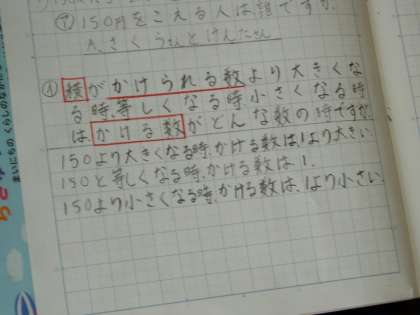 ⑦150円をこえる人は誰ですか。
A.さくらさんとけんたさん
①積がかけられる数より大きくな
る時、等しくなる時小さくなる時
は、かける数がどんな数の時ですか。
150より大きくなる時、かける数は、1より大きい。
150と等しくなる時、かける数は1.
150より小さくなる時、かける数は、1より小さい。
まいにちのくらしの